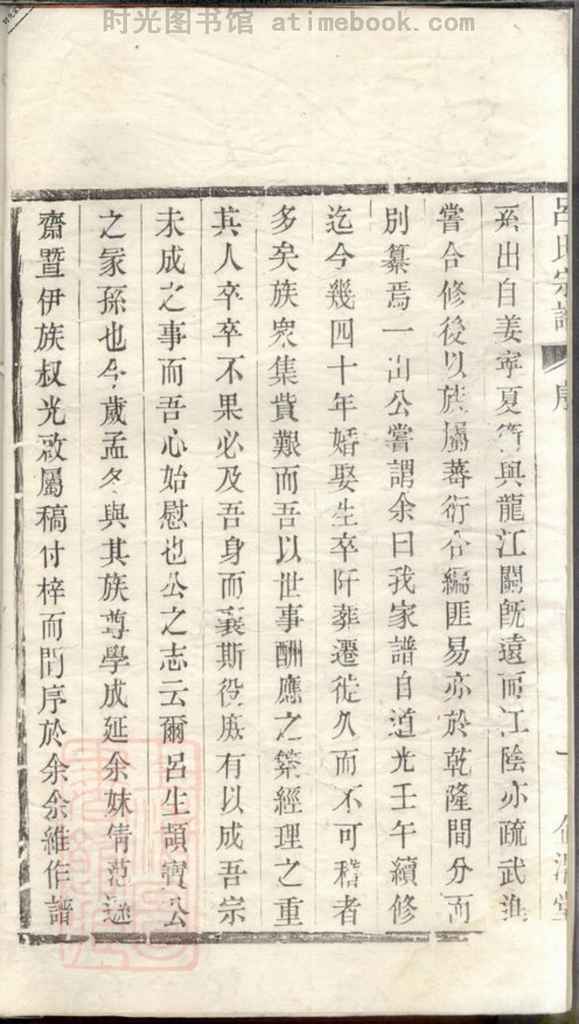 时光图书馆 atimebook.com
呂氏宗譜 序 一
系出自姜寧夏衛與龍江關既遠而江陰亦疏武進
嘗合修後以族屬蕃衍合編匪易亦於乾隆間分而
別纂焉一山公嘗謂余曰我家譜自道光壬午續修
迄今幾四十年婚娶生卒阡葬遷徙久而不可稽者
多矣族衆集貲艱而吾以世事酬應之繁經理之重
其人卒卒不果必及吾身而襄斯役庶有以成吾宗
未成之事而吾心始慰也公之志云爾呂生頡寶公
之冢孫也今歲孟冬與其族尊學成延余妹倩范
齋暨伊族叔光啟屬稿付梓而問序於余余維作譜